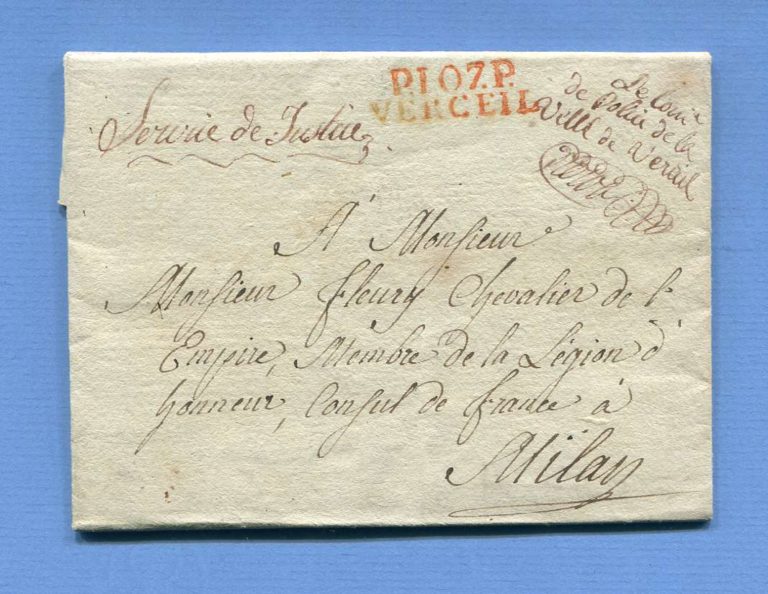 P.107.P.
VERCEIL
Le Com.re
de Police de la
Ville de Verceil
Service de Justice
A Monsieur
Monsieur Fleury Chevalier de l'
Empire, Membre de la Légion d'
honneur, Consul de france à
Milan